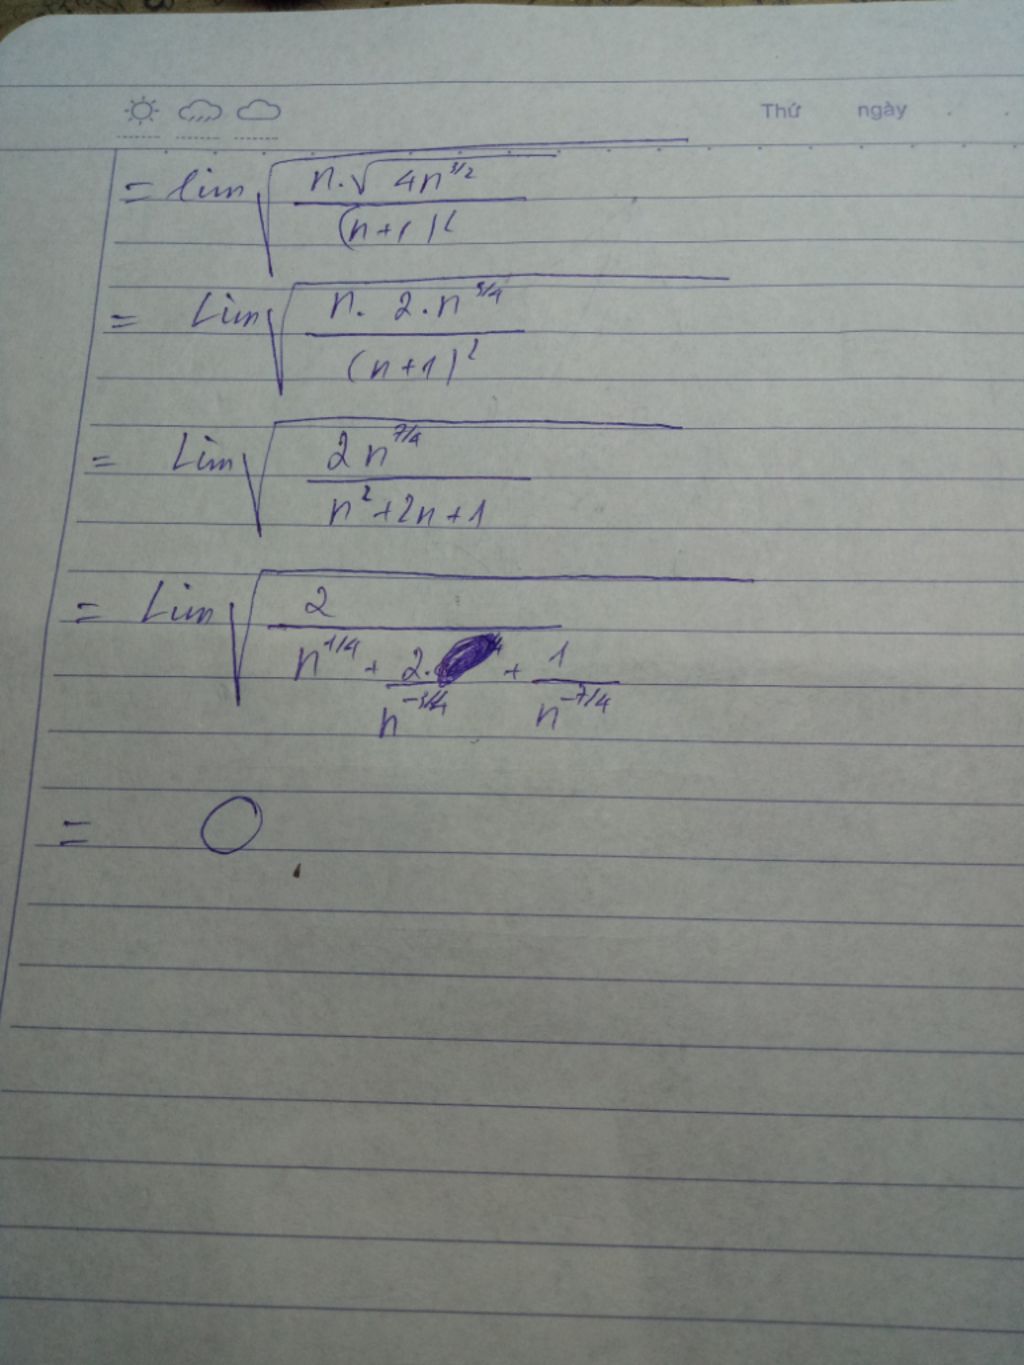 Thứ ngày
= lim √(n.√(4n^3/2) / (n+1)²)
= Lim √(n. 2.n^3/4 / (n+1)²)
= Lim √(2n^7/4 / n²+2n+1)
= Lim √(2 / n^1/4 + 2. / n^-3/4 + 1 / n^-7/4)
= 0